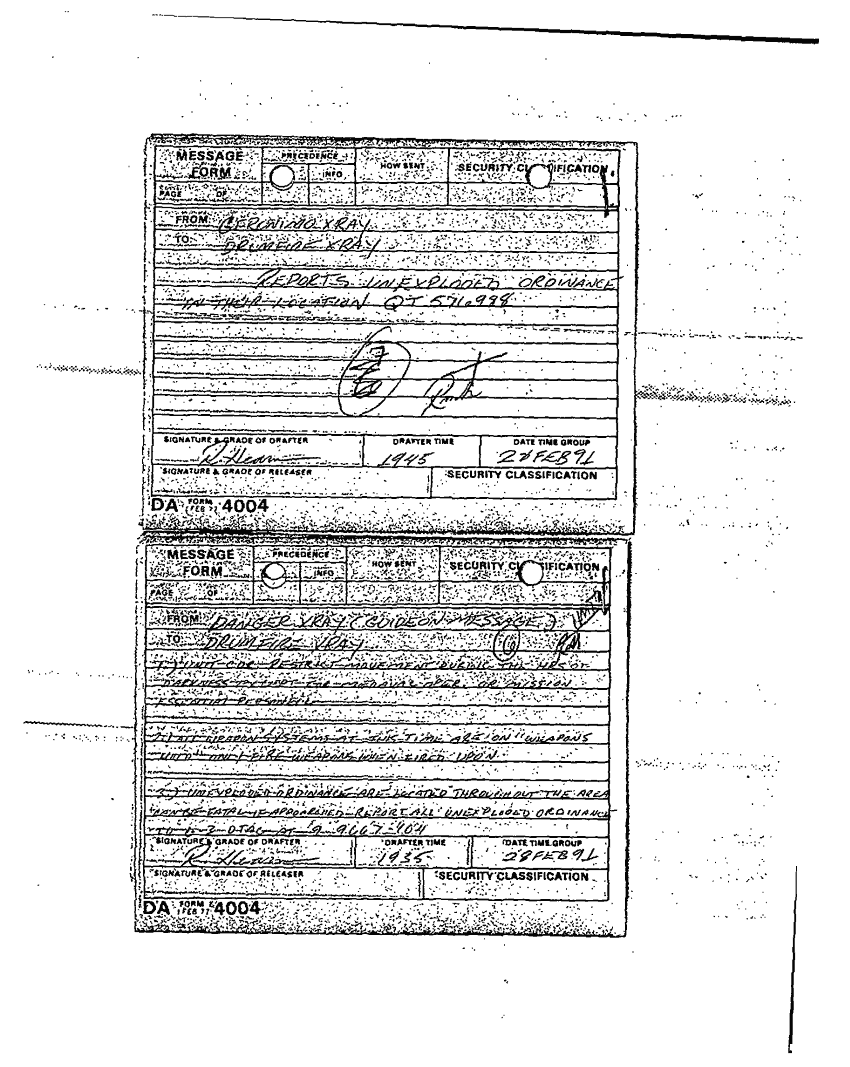 MESSAGE FORM
PRECEDENCE
INFO
HOW SENT
SECURITY CLASSIFICATION
PAGE OF
FROM GERONIMO XRAY
TO DRUMFIRE XRAY
REPORTS UNEXPLODED ORDINANCE
IN THEIR LOCATION QT
SIGNATURE & GRADE OF DRAFTER
DRAFTER TIME
DATE TIME GROUP
1945
28 FEB 91
SIGNATURE & GRADE OF RELEASER
SECURITY CLASSIFICATION
DA FORM 4004
MESSAGE FORM
PRECEDENCE
INFO
HOW SENT
SECURITY CLASSIFICATION
PAGE OF
FROM DANGER XRAY (GUIDEON MESSAGE)
TO DRUMFIRE XRAY
1.) UNIT CDR RESTRICT MOVEMENT DURING THE HRS OF
DARKNESS EXCEPT FOR OR MISSION
ESSENTIAL PERSONNEL
2.) ALL WEAPON SYSTEMS AT THIS TIME ARE ON "WEAPONS
HOLD" ONLY FIRE WEAPONS WHEN FIRED UPON
3.) UNEXPLODED ORDINANCE ARE LOCATED THROUGHOUT THE AREA
CAN BE FATAL IF REPORT ALL UNEXPLODED ORDINANCE
TO
SIGNATURE & GRADE OF DRAFTER
DRAFTER TIME
DATE TIME GROUP
1935
28 FEB 91
SIGNATURE & GRADE OF RELEASER
SECURITY CLASSIFICATION
DA FORM 4004